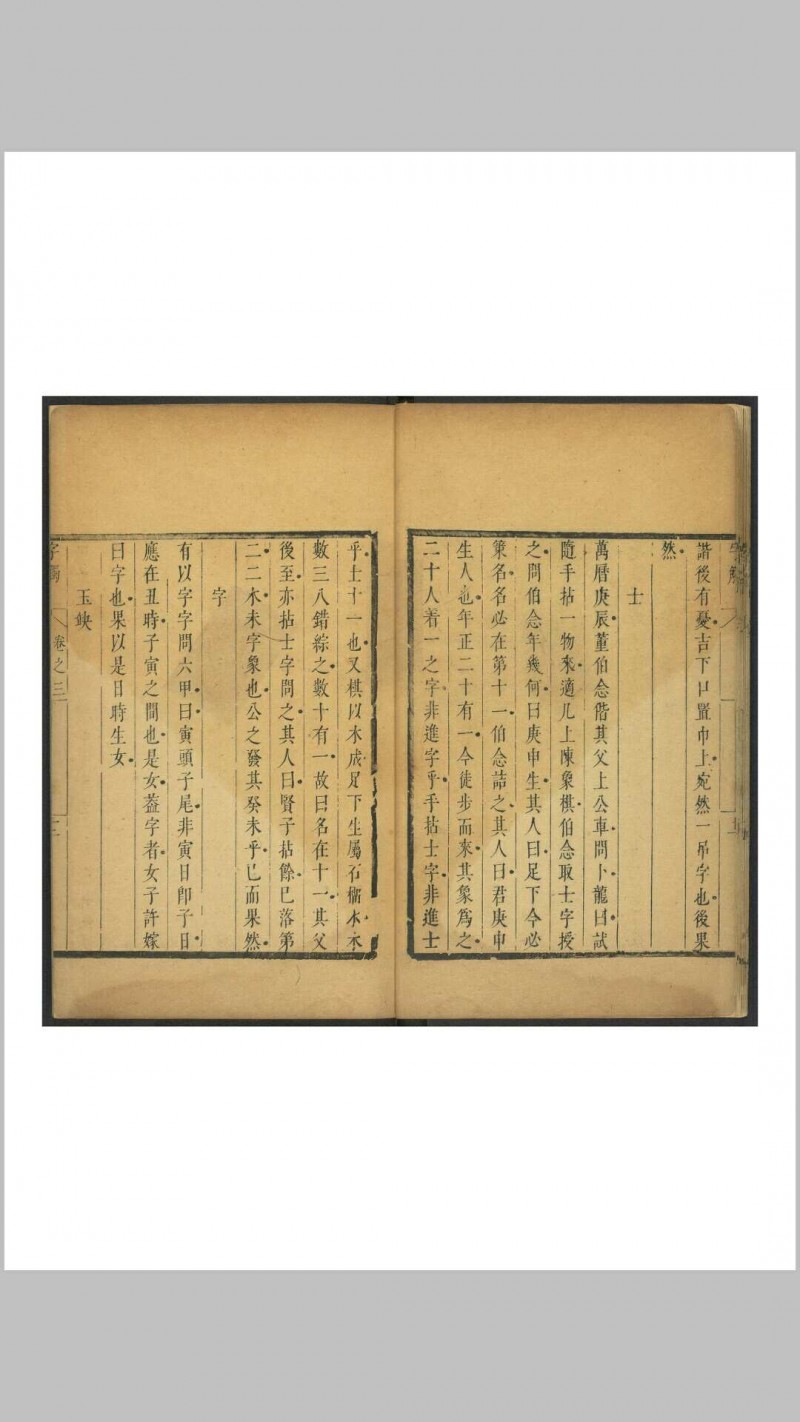 諧後有憂吉下口置巾上宛然一吊字也後果
然
士
萬曆庚辰董伯念偕其父上公車問卜龍曰試
隨手拈一物來適几上陳象棋伯念取士字授
之問伯念年幾何曰庚申生其人曰足下今必
策名名必在第十一伯念詰之其人曰君庚申
生人也年正二十有一今徒步而來其象爲之
二十人着一之字非進字乎手拈士字非進士
乎士十一也又棋以木成足下生屬石榴木木
數三八錯綜之數十有一故曰名在十一其父
後至亦拈士字問之其人曰賢子拈餘已落第
二二木未字象也公之發其癸未乎已而果然
字
有以字字問六甲曰寅頭子尾非寅日卽子日
應在丑時子寅之間也是女葢字者女子許嫁
曰字也果以是日時生女
玉竣
字觸
卷之三